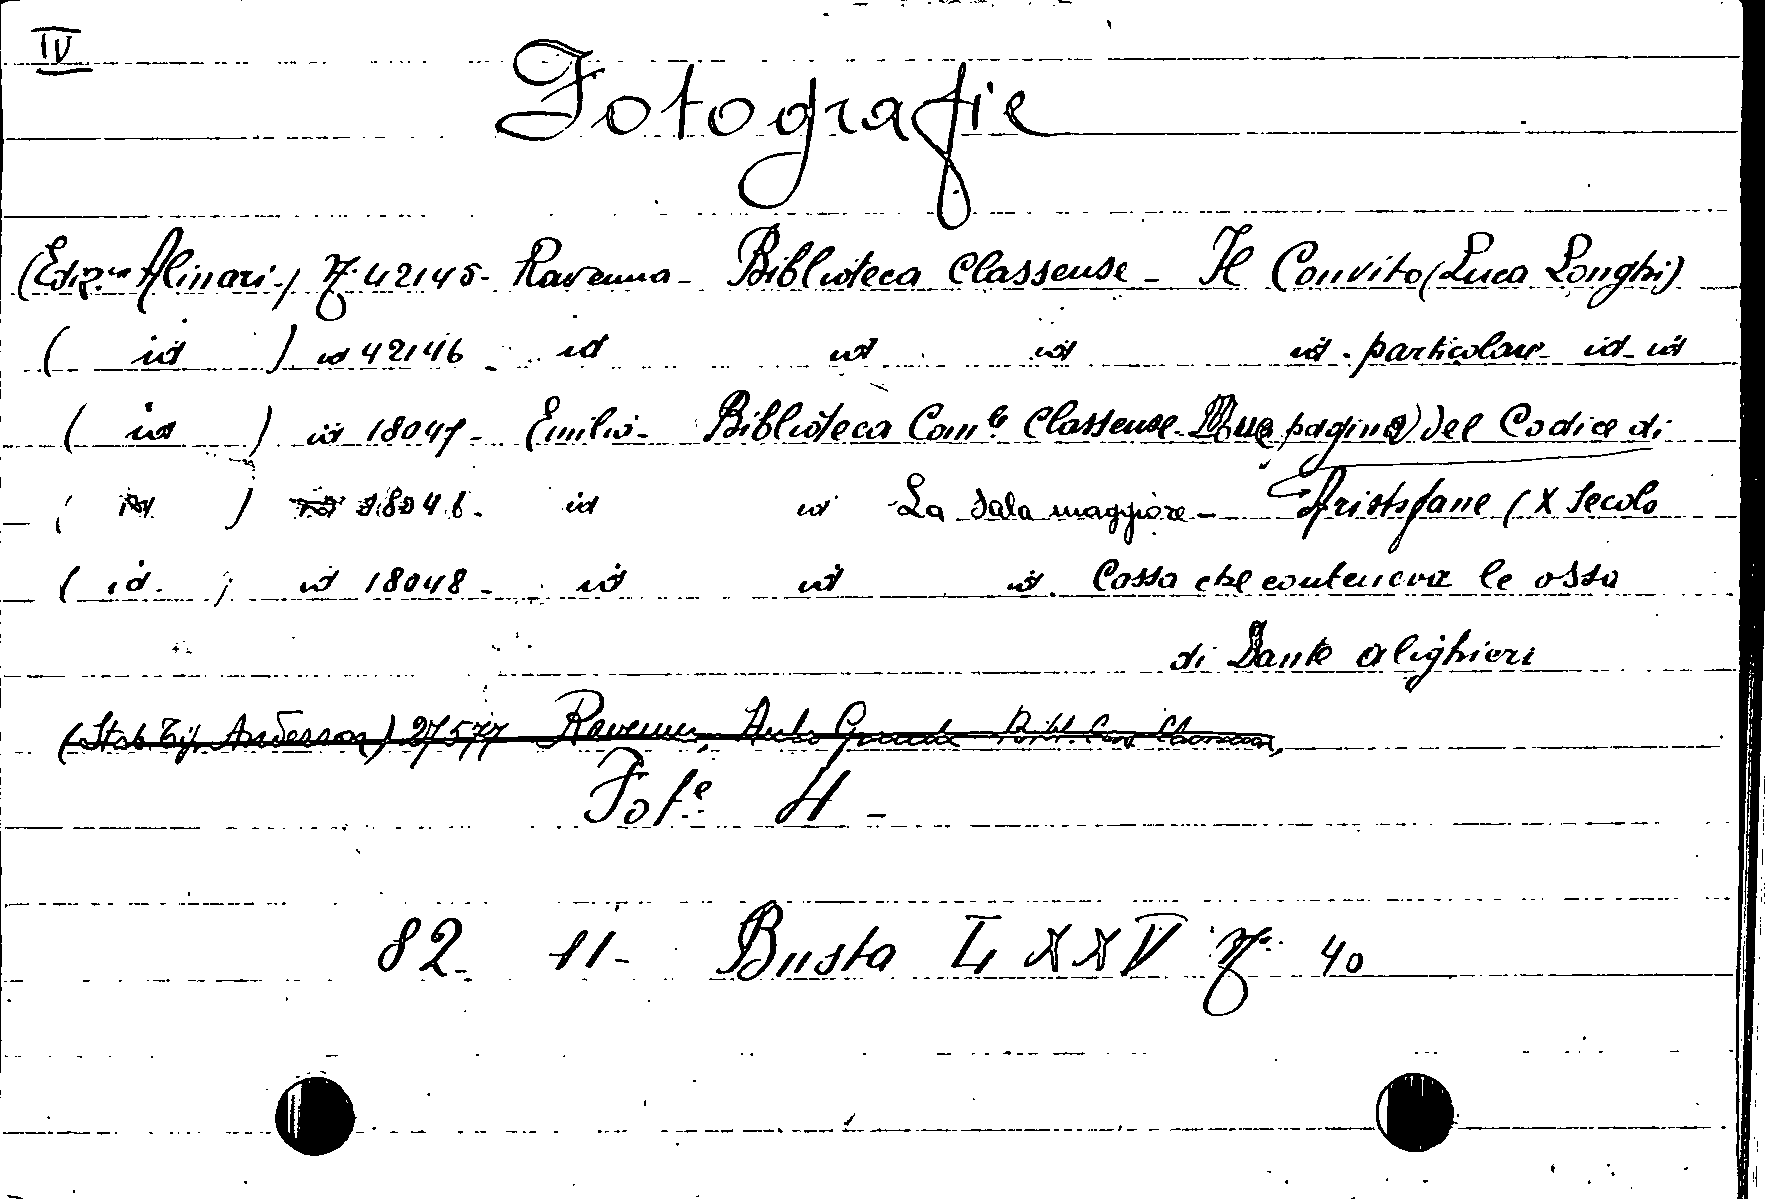 IV
Fotografie
(Ediz.ne Alinari.) N. 42145. Ravenna - Biblioteca Classense - Il Convito (Luca Longhi)
( id ) id 42146 - id id id id . particolare - id - id
( id ) id 18047 - Emilia - Biblioteca Com.le Classense - Due pagine del Codice di
( id ) id 18046 - id id La Sala maggiore - Aristofane (X Secolo
( id. ) id 18048 - id id id. Cassa che conteneva le ossa
di Dante Alighieri
(Stab. Anderson) 27577 Ravenna,
Fot.e 4 -
82. 11 - Busta LXXV N. 40